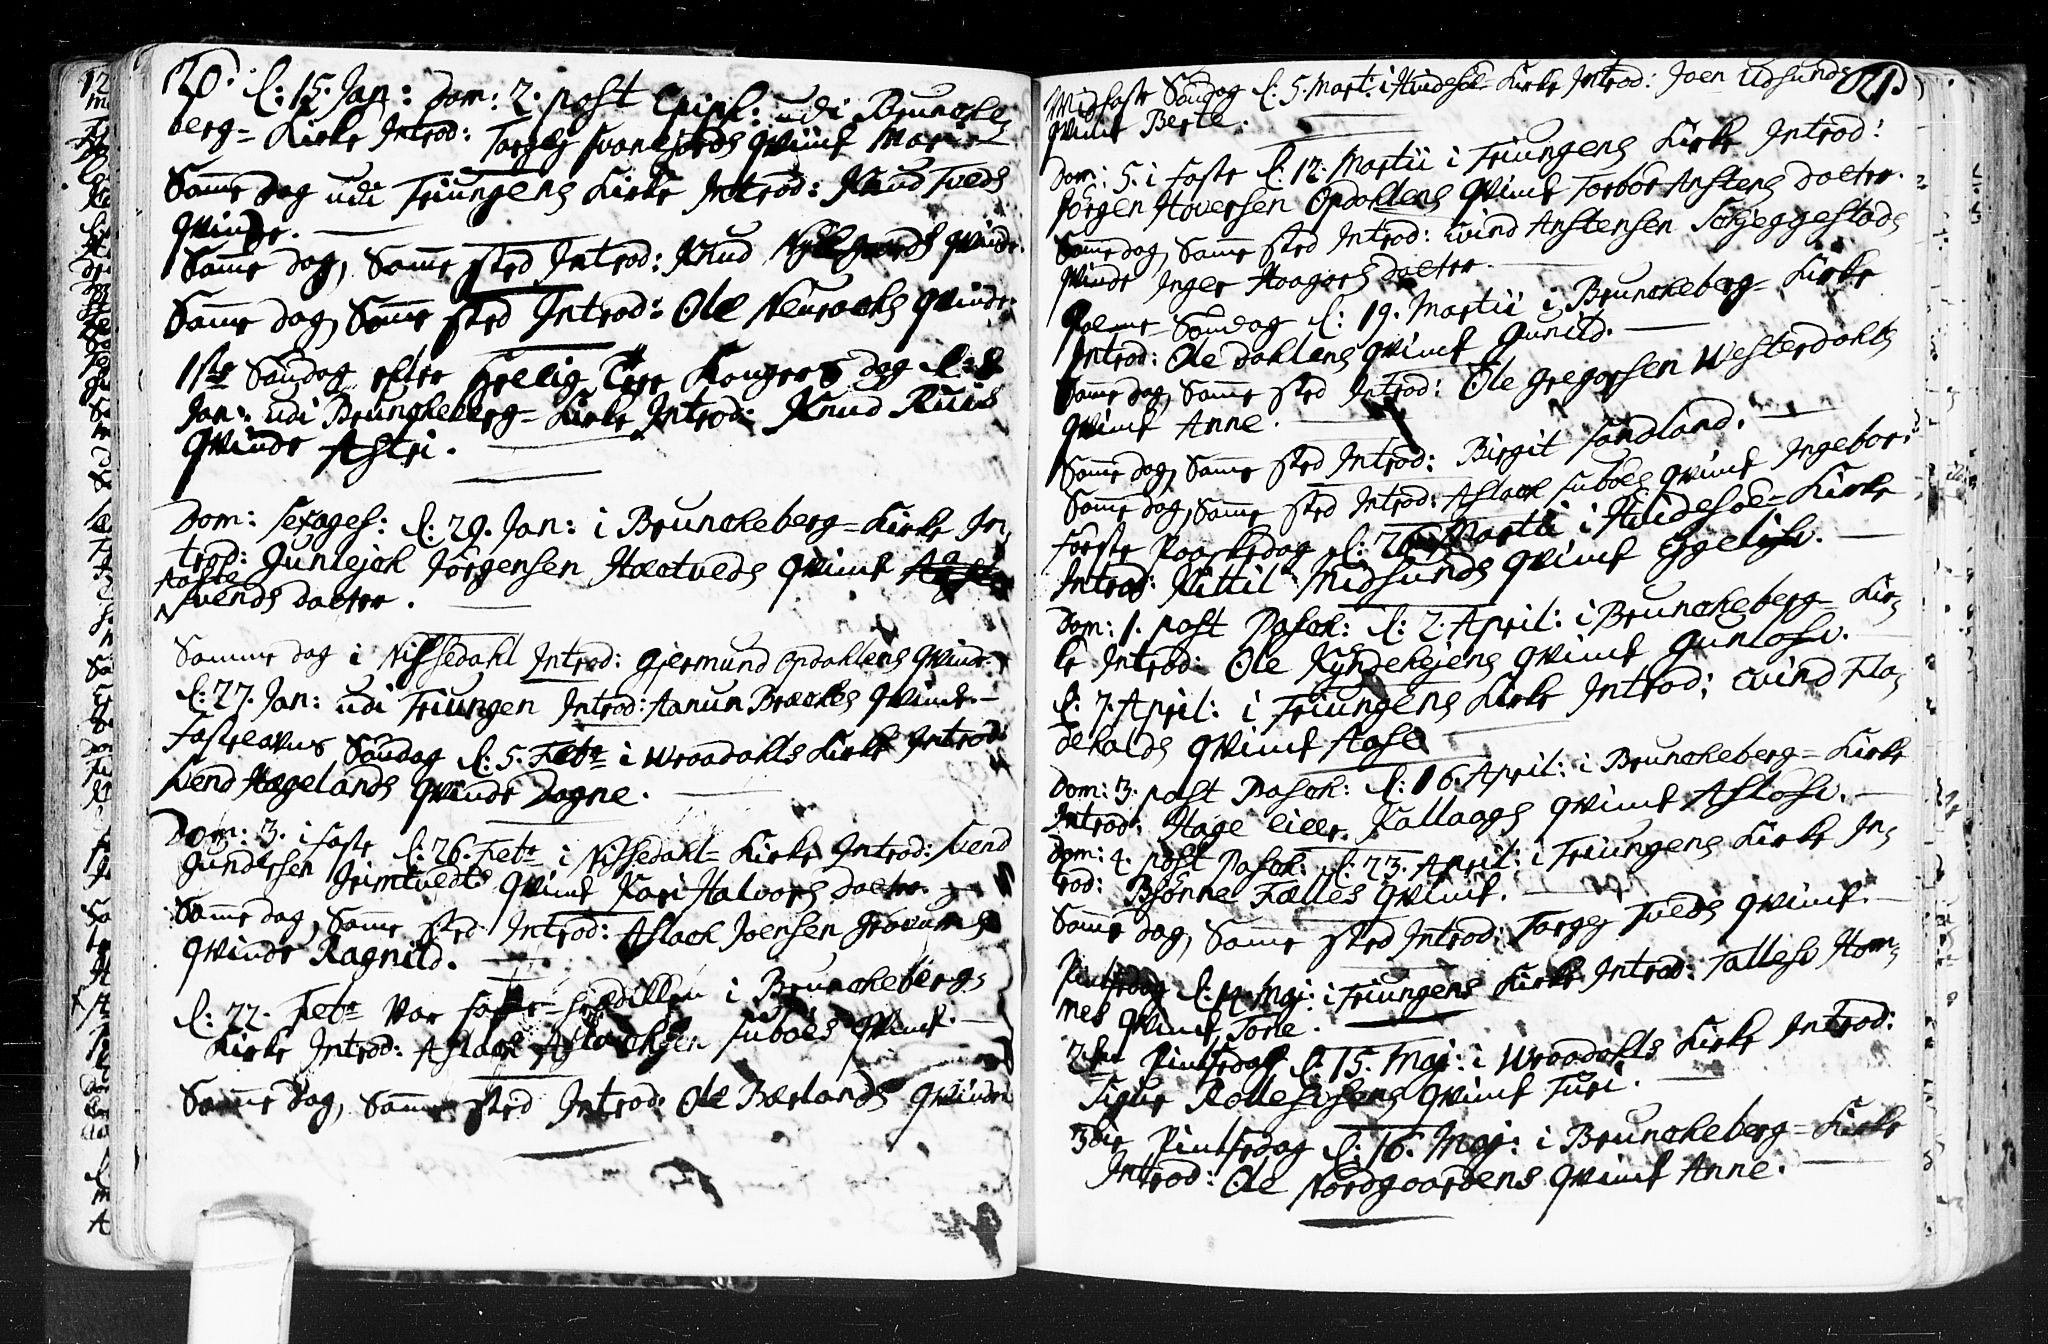 120.
d: 15. Jan: Dom: 2. post Epiph: udi Brunche,
berg= Kirke Introd: Targey Svanejords qvinde Mari
Samme dag udi Triungens Kirke Introd: Knud Tveds
qvinde.
Samme dag, Samme sted Introd: Knud qvinde.
Samme dag, Samme sted Introd: Ole Neuraaks qvinde.
1ste Søndag efter Hellig Tre Kongers dag d: 8
Jan: udi Bruncheberg= Kirke Introd: Knud Ruis
qvinde Astri.
Dom: Sexages: d: 29. Jan: i Bruncheberg= Kirke In,
trod: Gunlejch Jörgensen Hactveds qvinde
Aaste
Svends daater.
Samme dag i Nissedahl Introd: Gjermund Opdahlens qvinde.
d: 27. Jan: udi Triungen Introd: Aanun Bræches qvinde.
Fastelavns Søndag d: 5. Febr i Wraadahls Kirke Introd:
Svend Hægelands qvinde Dagne.
Dom: 3. i Faste d: 26. Febr i Nissedahl= Kirke Introd: Svend
Gundersen Grimtvedts qvinde Kari Halvors daater.
Samme dag, Samme sted Introd: Aslach Joensen Gravums
qvinde Ragnild.
d: 22. Febr var Faste= i Bruncheberg,
Kirke Introd: Aslach Aslachsen Suboes qvinde.
Samme dag, Samme sted Introd: Ole Bærlands qvinde
121.
Midfaste Søndag d: 5. Mart: i Hvidesøe= Kirke Introd: Joen Udsunds
qvinde Berte.
Dom: 5. i Faste d: 12. Martii i Triungens Kirke Introd:
Jörgen Hoversen Opdahlens qvinde Torbor Anstens daater.
Samme dag, Samme sted Introd: Evind Anstensen Schjeggestads
qvinde Inger Haagors daater.
Palme Søndag d: 19. Martii i Bruncheberg= Kirke
Introd: Ole Dahlens qvinde Gunild.
Samme dag, Samme sted Introd: Ole Gregorsen Westerdahls
qvinde Anne.
Samme dag, Samme sted Introd: Birgit Sandland.
Samme dag, Samme sted Introd: Aslach Suboes qvinde Ingebor.
Første Paaskedag d: 26. Martii i Hvidesøe= Kirke
Introd: Kittil Midsunds qvinde Eggelif.
Dom: 1. post Pasch: d: 2. April: i Bruncheberg= Kir,
ke Introd: Ole Kyndekjens qvinde Gunlosv.
d: 7. April: i Triungens Kirke Introd: Evind Fla,
dekalds qvinde Aase
Dom: 3. post Pasch: d: 16. April: i Bruncheberg= Kirke
Introd: Hage Kallaags qvinde Aslosv.
Dom: 4. post Pasch: d: 23. April: i Triungens Kirke In,
trod: Bjönne Fælles qvinde.
Samme dag, Samme sted Introd: Targey Tveds qvinde.
Pintsedag d: 14 Maj: i Triungens Kirke Introd: Tallesv Hom,
mes qvinde Torle.
2den Pintsedag d: 15. Maj: i Wraadahls Kirke Introd:
Sigur Rollesvsens qvinde Turi.
3die Pintsedag d: 16. Maj: i Bruncheberg= Kirke
Introd: Ole Nordgaardens qvinde Anne.